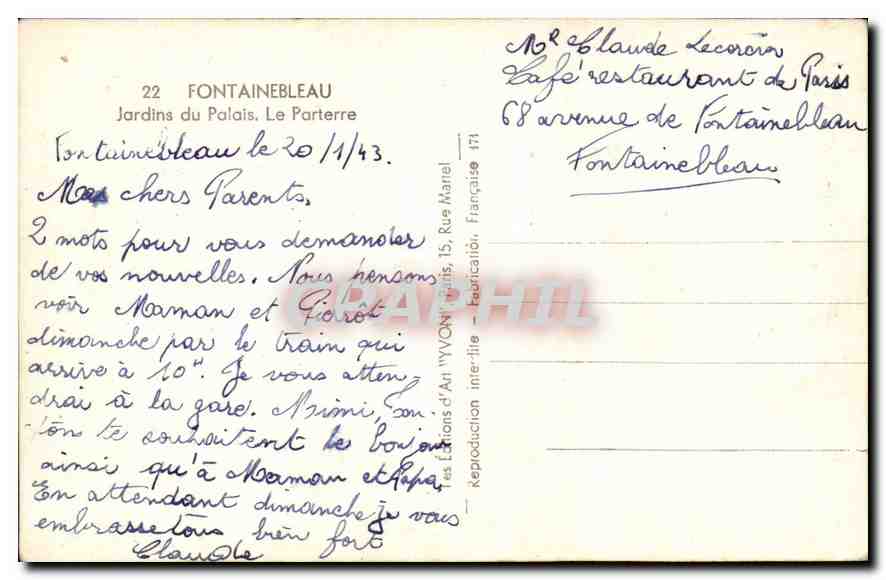 22 FONTAINEBLEAU
Jardins du Palais. Le Parterre
Fontainebleau le 20/1/43.
Mes chers Parents.
2 mots pour vous demander
de vos nouvelles. Nous pensons
voir Maman et Pierrot
dimanche par le train qui
arrive à 10H. Je vous atten-
drai à la gare. Mimi,
te souhaitent le bonjour
ainsi qu'à Maman et Papa,
En attendant dimanche je vous
embrasse tous bien fort
Claude
Les Editions d'Art "YVON" Paris, 15, Rue Martel
Reproduction interdite - Fabrication Française 171
CPAPHIL
Mr Claude
Café restaurant de Paris
68 avenue de Fontainebleau
Fontainebleau